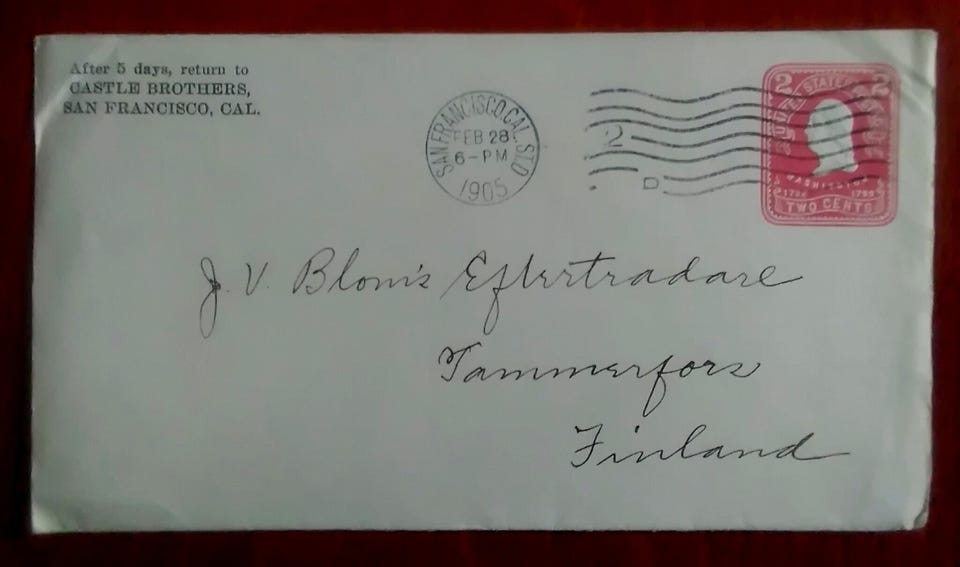 After 5 days, return to
CASTLE BROTHERS,
SAN FRANCISCO, CAL.
SAN FRANCISCO, CAL. STA. D
FEB 28
6-PM
1905
2
D
2 2
UNITED STATES POSTAGE
WASHINGTON
1799
TWO CENTS
J. V. Blom's Efterträdare
Tammerfors
Finland